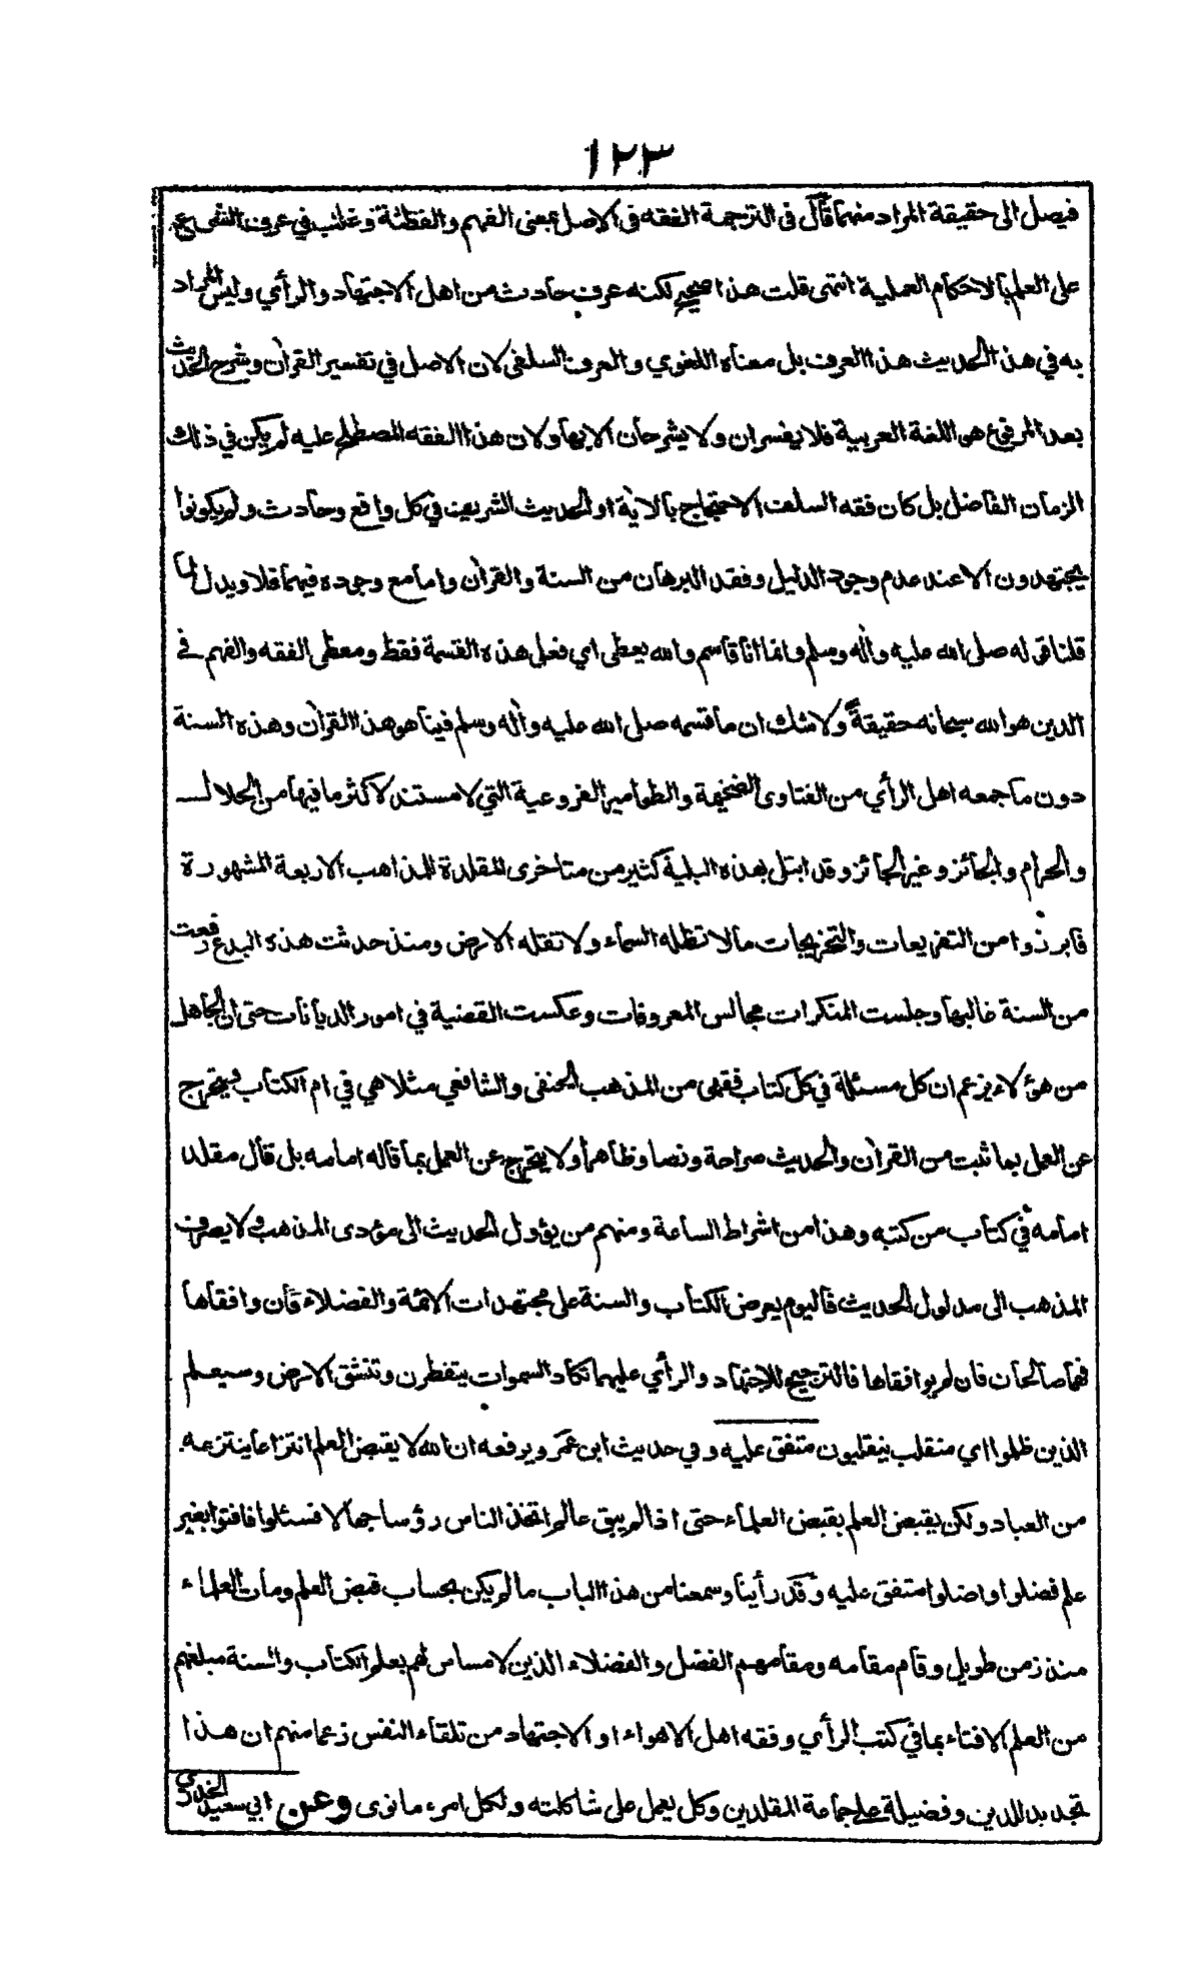 ١٢٣
فيصل الى حقيقة المراد منهما قال فى الترجمة الفقه فى الاصل بمعنى الفهم والفطنة وغالب في عرف الشرع
على العلم بالاحكام العملية انتهى قلت هذا صحيح لكنه عرف حادث من اهل الاجتهاد والرأي وليس المراد
به في هذا الحديث هذا العرف بل معناه اللغوي والعرف السلفى لان الاصل في تفسير القرآن وشرح الحديث
بعد المرفوع هى اللغة العربية فلا يفسران ولا يشرحان الا بها ولان هذا الفقه المصطلح عليه لم يكن في ذلك
الزمان الفاضل بل كان فقه السلف الاحتجاج بالاية او الحديث الشريف في كل واقع وحادث ولم يكونوا
يجتهدون الا عند عدم وجود الدليل وفقد البرهان من السنة والقرآن واما مع وجوده فيهما فلا ويدل لما
قلنا قوله صلى الله عليه وآله وسلم وانما انا قاسم والله يعطى اي فعلى هذه القسمة فقط ومعطى الفقه والفهم في
الدين هو الله سبحانه حقيقة ولا شك ان ما قسمه صلى الله عليه وآله وسلم فينا هو هذا القرآن وهذه السنة
دون ما جمعه اهل الرأي من الفتاوى الضخيمة والطوامير الفروعية التي لا مستند لاكثر ما فيها من الحلال
والحرام والجائز وغير الجائز وقد ابتلى بهذه البلية كثير من متاخرى المقلدة للمذاهب الاربعة المشهورة
فابرزوا من التفريعات والتخريجات ما لا تظله السماء ولا تقله الارض ومنذ حدثت هذه البدع رفعت
من السنة غالبها وجلست المنكرات مجالس المعروفات وعكست القضية في امور الديانات حتى ان الجاهل
من هؤلاء يزعم ان كل مسئلة في كل كتاب فقهى من المذهب الحنفى والشافعي مثلا هي في ام الكتاب ويتحرج
عن العمل بما ثبت من القرآن والحديث صراحة ونصا وظاهرا ولا يتحرج عن العمل بما قاله امامه بل قال مقلد
امامه في كتاب من كتبه وهذا من اشراط الساعة ومنهم من يؤول الحديث الى مؤدى المذهب ولا يصرف
المذهب الى مدلول الحديث فاليوم يعرض الكتاب والسنة على مجتهدات الائمة والفضلاء فان وافقاها
فهما صالحان فان لم يوافقاها فالترجيح للاجتهاد والرأي عليهما تكاد السموات يتفطرن وتنشق الارض وسيعلم
الذين ظلموا اي منقلب ينقلبون متفق عليه وفي حديث ابن عمرو يرفعه ان الله لا يقبض العلم انتزاعا ينتزعه
من العباد ولكن يقبض العلم بقبض العلماء حتى اذا لم يبق عالم اتخذ الناس رؤسا جهالا فسئلوا فافتوا بغير
علم فضلوا واضلوا متفق عليه وقد رأينا وسمعنا من هذا الباب ما لم يكن بحساب قبض العلم ومات العلماء
منذ زمن طويل وقام مقامه ومقامهم الفضل والفضلاء الذين لا مساس لهم بعلم الكتاب والسنة مبلغهم
من العلم الافتاء بما في كتب الرأي وفقه اهل الاهواء او الاجتهاد من تلقاء النفس زعما منهم ان هذا
تجديد للدين وفضيلة على جماعة المقلدين وكل يعمل على شاكلته ولكل امرء ما نوى وعن ابي سعيد الخدري